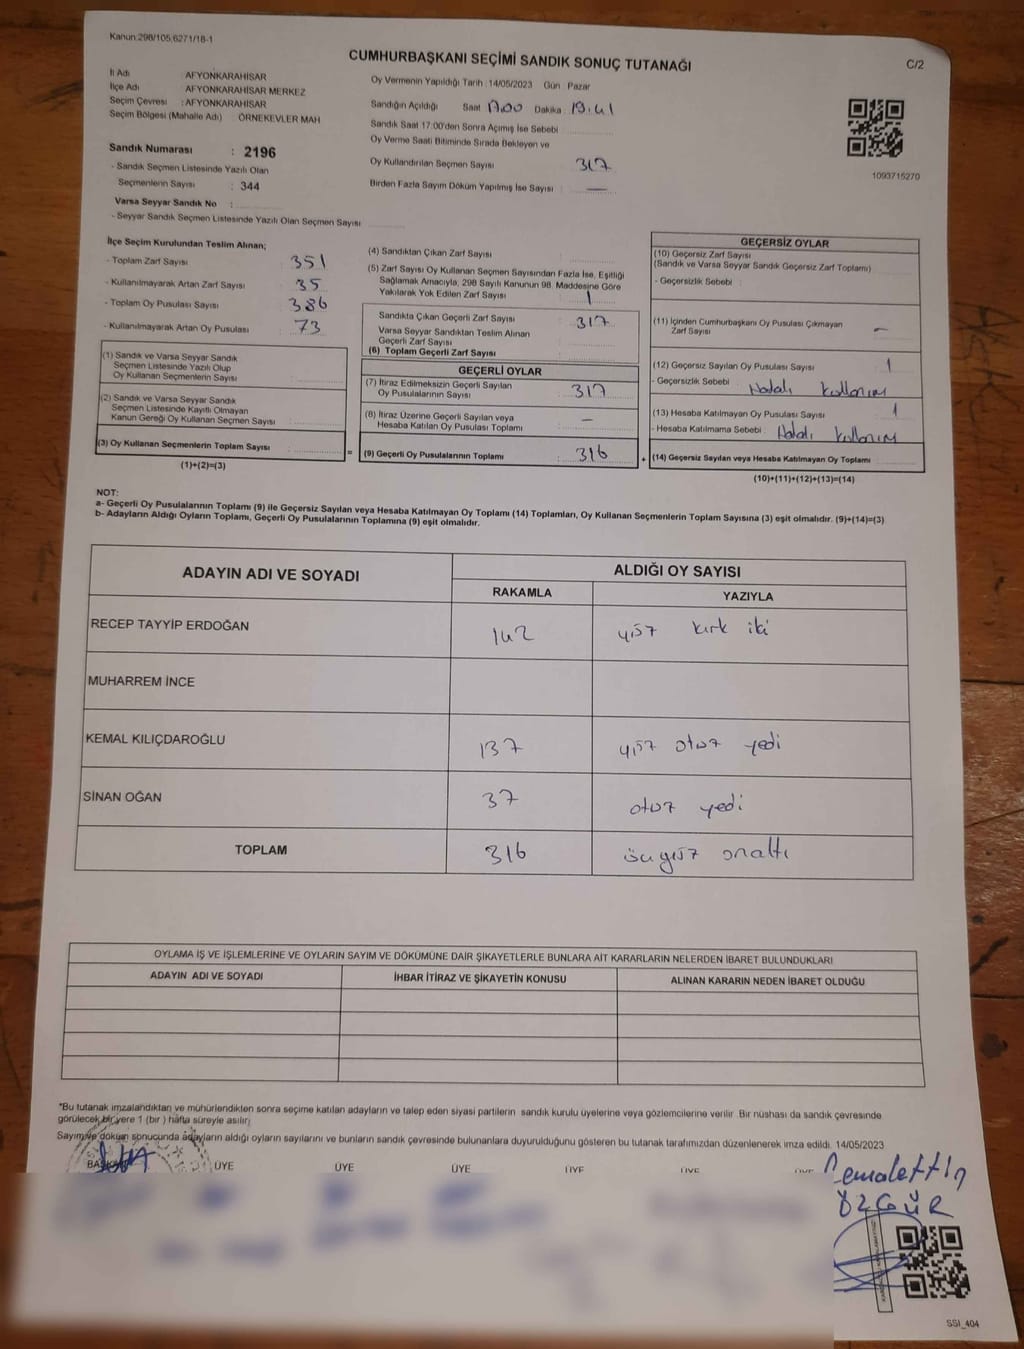 Kanun:298/105,6271/18-1
CUMHURBAŞKANI SEÇİMİ SANDIK SONUÇ TUTANAĞI
C/2
İl Adı : AFYONKARAHİSAR
İlçe Adı AFYONKARAHİSAR MERKEZ
Seçim Çevresi : AFYONKARAHİSAR
Seçim Bölgesi (Mahalle Adı) : ÖRNEKEVLER MAH
Sandık Numarası : 2196
- Sandık Seçmen Listesinde Yazılı Olan
Seçmenlerin Sayısı : 344
Varsa Seyyar Sandık No :
- Seyyar Sandık Seçmen Listesinde Yazılı Olan Seçmen Sayısı
Oy Vermenin Yapıldığı Tarih :14/05/2023 Gün Pazar
Sandığın Açıldığı Saat 17.00 Dakika 19:41
Sandık Saat 17:00'den Sonra Açımış İse Sebebi
Oy Verme Saati Bitiminde Sırada Bekleyen ve
Oy Kullandırılan Seçmen Sayısı 317
Birden Fazla Sayım Döküm Yapılmış İse Sayısı : —
1093715270
İlçe Seçim Kurulundan Teslim Alınan;
- Toplam Zarf Sayısı : 351
- Kullanılmayarak Artan Zarf Sayısı : 35
- Toplam Oy Pusulası Sayısı : 386
- Kullanılmayarak Artan Oy Pusulası : 73
(1) Sandık ve Varsa Seyyar Sandık
Seçmen Listesinde Yazılı Olup
Oy Kullanan Seçmenlerin Sayısı :
(2) Sandık ve Varsa Seyyar Sandık
Seçmen Listesinde Kayıtlı Olmayan
Kanun Gereği Oy Kullanan Seçmen Sayısı :
(3) Oy Kullanan Seçmenlerin Toplam Sayısı :
(1)+(2)=(3)
(4) Sandıktan Çıkan Zarf Sayısı :
(5) Zarf Sayısı Oy Kullanan Seçmen Sayısından Fazla İse, Eşitliği
Sağlamak Amacıyla, 298 Sayılı Kanunun 98. Maddesine Göre
Yakılarak Yok Edilen Zarf Sayısı : 1
Sandıkta Çıkan Geçerli Zarf Sayısı : 317
Varsa Seyyar Sandıktan Teslim Alınan
Geçerli Zarf Sayısı
(6) Toplam Geçerli Zarf Sayısı
GEÇERLİ OYLAR
(7) İtiraz Edilmeksizin Geçerli Sayılan
Oy Pusulalarının Sayısı : 317
(8) İtiraz Üzerine Geçerli Sayılan veya
Hesaba Katılan Oy Pusulası Toplamı : —
= (9) Geçerli Oy Pusulalarının Toplamı : 316 +
GEÇERSİZ OYLAR
(10) Geçersiz Zarf Sayısı
(Sandık ve Varsa Seyyar Sandık Geçersiz Zarf Toplamı)
- Geçersizlik Sebebi :
(11) İçinden Cumhurbaşkanı Oy Pusulası Çıkmayan
Zarf Sayısı —
(12) Geçersiz Sayılan Oy Pusulası Sayısı : 1
- Geçersizlik Sebebi : Hatalı kullanım
(13) Hesaba Katılmayan Oy Pusulası Sayısı : 1
- Hesaba Katılmama Sebebi : Hatalı kullanım
(14) Geçersiz Sayılan veya Hesaba Katılmayan Oy Toplamı
(10)+(11)+(12)+(13)=(14)
NOT:
a- Geçerli Oy Pusulalarının Toplamı (9) ile Geçersiz Sayılan veya Hesaba Katılmayan Oy Toplamı (14) Toplamları, Oy Kullanan Seçmenlerin Toplam Sayısına (3) eşit olmalıdır. (9)+(14)=(3)
b- Adayların Aldığı Oyların Toplamı, Geçerli Oy Pusulalarının Toplamına (9) eşit olmalıdır.
ADAYIN ADI VE SOYADI ALDIĞI OY SAYISI
RAKAMLA YAZIYLA
RECEP TAYYİP ERDOĞAN 142 yüz kırk iki
MUHARREM İNCE
KEMAL KILIÇDAROĞLU 137 yüz otuz yedi
SİNAN OĞAN 37 otuz yedi
TOPLAM 316 üçyüz onaltı
OYLAMA İŞ VE İŞLEMLERİNE VE OYLARIN SAYIM VE DÖKÜMÜNE DAİR ŞİKAYETLERLE BUNLARA AİT KARARLARIN NELERDEN İBARET BULUNDUKLARI
ADAYIN ADI VE SOYADI İHBAR İTİRAZ VE ŞİKAYETİN KONUSU ALINAN KARARIN NEDEN İBARET OLDUĞU
*Bu tutanak imzalandıktan ve mühürlendikten sonra seçime katılan adayların ve talep eden siyasi partilerin sandık kurulu üyelerine veya gözlemcilerine verilir .Bir nüshası da sandık çevresinde
görülecek bir yere 1 (bir ) hafta süreyle asılır.
Sayım ve döküm sonucunda adayların aldığı oyların sayılarını ve bunların sandık çevresinde bulunanlara duyurulduğunu gösteren bu tutanak tarafımızdan düzenlenerek imza edildi. 14/05/2023
BAŞKAN ÜYE ÜYE ÜYE ÜYE ÜYE ÜYE
Cemalettin
ÖZGÜR
SSI_404